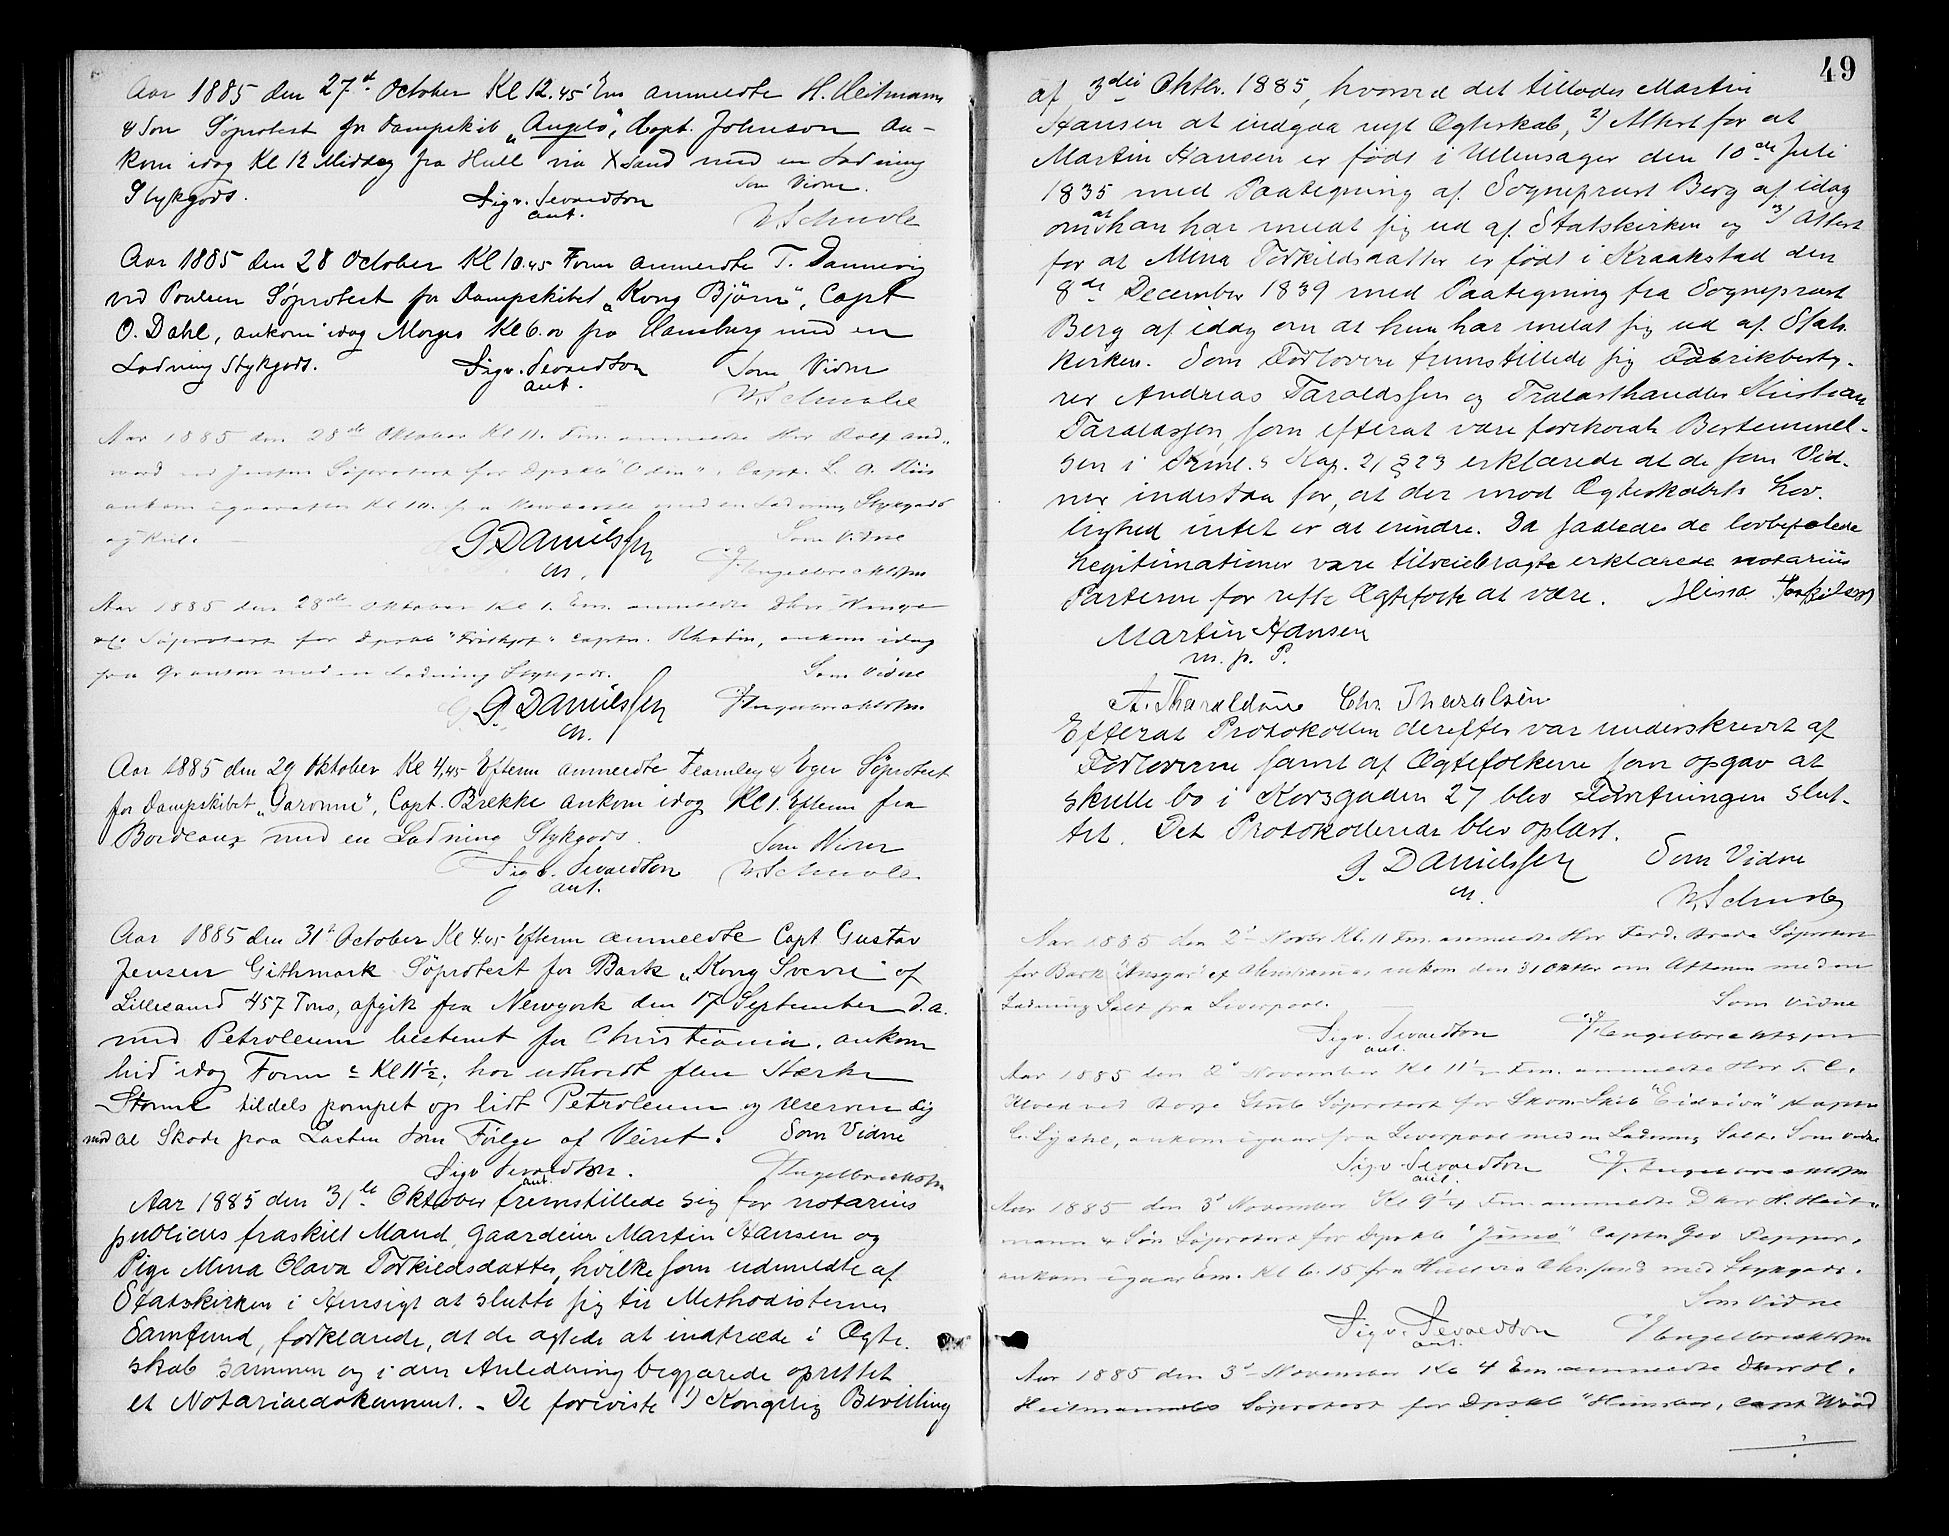 Aar 1885 den 27d. October Kl 12.45 Em anmeldte H. Heitmann
& Søn Søprotest for Dampskib "Angelo", Capt. Johnson an-
kom idag Kl 12 Middag fra Hull via Xsand med en Ladning
Stykgods. Sigv. Sevaldson Som Vidne.
ant. W. Schwolz
Aar 1885 den 28 October Kl 10.45 Form anmeldte T. Dannevig
ved Poulsen Søprotest for Dampskibet "Kong Bjørn", Capt
O. Dahl, ankom idag Morges Kl 6.00 fra Hamburg med en
Ladning Stykgods. Sigv. Sevaldson Som Vidne
ant.
Aar 1885 den 28de Oktober Kl 11. Fm. anmeldte Hr Rolf And-
vord ved Søprotest for Dpskb "Odin", Capt.
ankom igaaraftes Kl 10. fra Newcastle med en Ladning Stykgods
og Kul. G. Danielssen Som Vidne
cst. Engelbrechtsen
Aar 1885 den 28de Oktober Kl 1. Em. anmeldte
& Co Søprotest for Dpskb Captn. ankom idag
fra med en Ladning Stykgods. Som Vidne
G. Danielssen Engelbrechtsen
cst.
Aar 1885 den 29 Oktober Kl 4,45 Efterm anmeldte Fearnley & Eger Søprotest
for Dampskibet "Garonne", Capt. Brekke ankom idag Kl 1. Efterm fra
Bordeaux med en Ladning Stykgods. Som Vidne
Sigv. Sevaldson
ant.
Aar 1885 den 31' October Kl 4.45 Efterm anmeldte Capt Gustav
Jensen Githmark Søprotest for Bark "Kong Sverre" af
Lillesand 457 Tons, afgik fra Newyork den 17 September d.a.
med Petroleum bestemt for Christiania, ankom
hid idag Form Kl 11½; har udholdt flere stærke
Storme tildels pompet op lidt Petroleum og reserverer sig
mod al Skade paa Lasten som Følge af Veiret. Som Vidne
Sigv Sevaldson. Engelbrechtsen
ant.
Aar 1885 den 31te Oktober fremstillede sig for notarius
publicus fraskilt Mand, Gaardeier Martin Hansen og
Pige Mina Olava Torkildsdatter, hvilke som udmeldte af
Statskirken i Hensigt at slutte sig til Methodisternes
Samfund, forklarede, at de agtede at indtræde i Ægte-
skab sammen og i den Anledning begjærede oprettet
et Notarialdokument. - De foreviste 1) Kongelig Bevilling
49
af 3die Oktbr. 1885, hvorved det tillades Martin
Hansen at indgaa nyt Ægteskab, 2) Attest for at
Martin Hansen er født i Ullensager den 10de Juli
1835 med Paategning af Sogneprest Berg af idag
om at han har meldt sig ud af Statskirken og 3) Attest
for at Mina Torkildsdatter er født i Kraakstad den
8de December 1839 med Paategning fra Sogneprest
Berg af idag om at hun har meldt sig ud af Stats-
kirken. Som Forlovere fremstillede sig Fabrikbesty-
rer Andreas Taraldssen og Trælasthandler Kristian
Taraldssen, som efterat være foreholdt Bestemmel-
sen i Kap. 21 § 23 erklærede at de som Vid-
ner indestaa for, at der mod Ægteskabets Lov-
lighed intet er at erindre. Da saaledes de lovbefalede
Legitimationer vare tilveiebragte erklærede notarius
Parterne for rette Ægtefolk at være. Mina Torkilds
Martin Hansen
m. p. P.
A. Tharaldsen Chr. Tharalsen
Efterat Protokollen derefter var underskrevet af
Forloverne samt af Ægtefolkene som opgav at
skulle bo i Korsgaden 27 blev Forretningen slut-
tet. Det Protokollerede blev oplæst.
G. Danielssen Som Vidne
cst.
Aar 1885 den 2' Novbr Kl. 11 Fm. anmeldte Hr Ferd. Søprotest
for Bark "Ansgar" af ankom den 31 Oktbr om Aftenen med en
Ladning Salt fra Liverpool. Som Vidne
Sigv. Sevaldson Engelbrechtsen
ant.
Aar 1885 den 2' November Kl 11½ Fm. anmeldte Hr T. C.
ved Søprotest for Skon. Skib "Eidsiva" Kaptn
ankom igaar fra Liverpool med en Ladning Salt. Som Vidne
Sigv. Sevaldson Engelbrechtsen
ant.
Aar 1885 den 3' November Kl 9¼ Fm. anmeldte D'Hrr H. Heit-
mann & Søn Søprotest for Dpskb "Juno" Captn Geo Pepper,
ankom igaar Em. Kl 6.15 fra Hull via Chr.sand med Stykgods.
Som Vidne
Sigv. Sevaldson Engelbrechtsen
ant.
Aar 1885 den 3' November Kl 4 Em anmeldte
Heitmann Søprotest for Dpskb Capt Wood